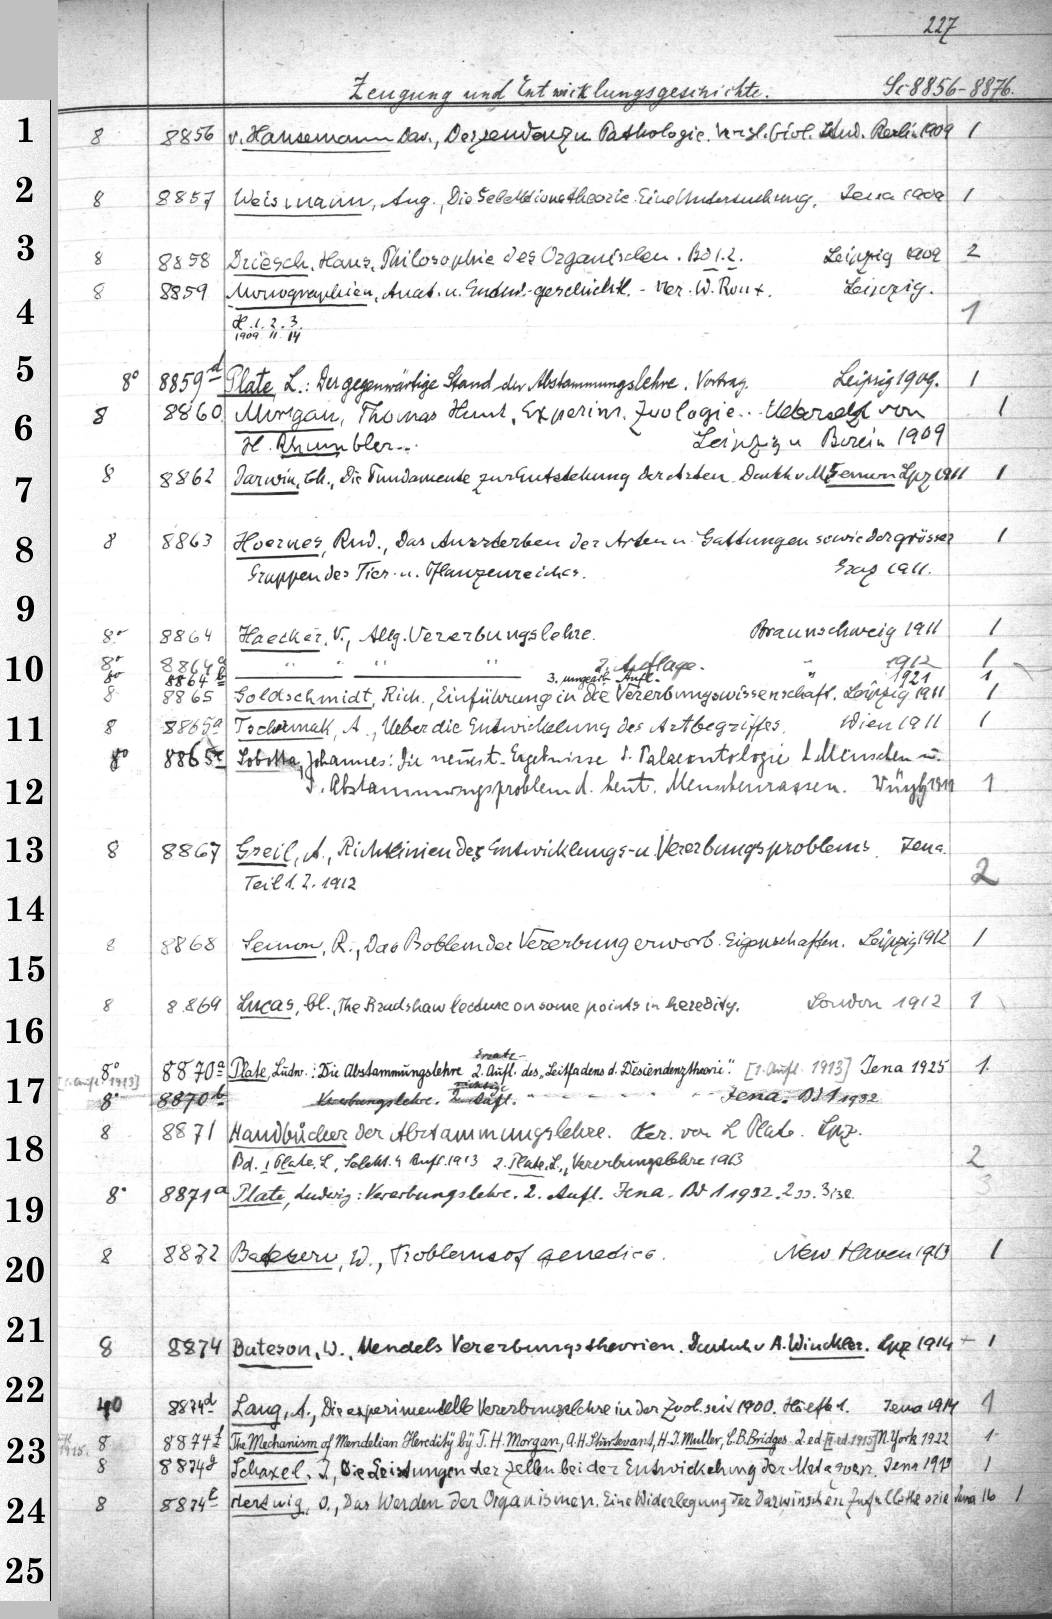 227
Zeugung und Entwicklungsgeschichte. Sc 8856-8876.
1 8 8856 v. Hansemann Dav., Deszendenz u Pathologie. Vergl. biol. Stud. Berlin 1909 1
2 8 8857 Weismann, Aug., Die Selektionstheorie. Eine Untersuchung. Jena 1909 1
3 8 8858 Driesch, Hans, Philosophie des Organischen. Bd 1.2. Leipzig 1909 2
8 8859 Monographien, Anat. u. Entw.-geschichtl. - Her. W. Roux. Leipzig.
4 H. 1. 2. 3. 1
1909 11 14
5 8° 8859d Plate, L.: Der gegenwärtige Stand der Abstammungslehre. Vortrag. Leipzig 1909. 1
8 8860. Morgan, Thomas Hunt, Experim. Zoologie. Uebersetzt von 1
6 H. Rhumbler. Leipzig u Berlin 1909
7 8 8862 Darwin, Ch., Die Fundamente zur Entstehung der Arten. Deutsch v M. Semon Lpz 1911 1
8 8 8863 Hoernes, Rud., Das Aussterben der Arten u. Gattungen sowie der grösser 1
Gruppen des Tier- u. Pflanzenreiches. Graz 1911.
9 8° 8864 Haecker, V., Allg. Vererbungslehre. Braunschweig 1911 1
10 8° 8864a " " " " 2. Auflage. " 1912 1
8° 8864b 3. umgearb. Aufl. " 1921 1
8 8865 Goldschmidt, Rich., Einführung in die Vererbungswissenschaft. Leipzig 1911 1
11 8 8865a Tschermak, A., Ueber die Entwickelung des Artbegriffes. Wien 1911 1
8° 8865c Sobotta, Johannes: Die neuest. Ergebnisse d. Palaeontologie d. Menschen u.
12 d. Abstammungsproblem d. heut. Menschenrassen. Würzb 1911 1
13 8 8867 Greil, A., Richtlinien des Entwicklungs- u. Vererbungsproblems. Jena.
Teil 1. 2. 1912 2
14
15 8 8868 Semon, R., Das Problem der Vererbung erworb. Eigenschaften. Leipzig 1912 1
16 8 8869 Lucas, Cl., The Bradshaw lecture on some points in heredity. London 1912 1
8° 8870a Plate, Ludw.: Die Abstammungslehre 2. Aufl. des „Leitfadens d. Deszendenztheorie". [1. Aufl. 1913] Jena 1925 1
[1. Aufl. 1913]
17 8° 8870b Vererbungslehre. 2. Aufl. " - - - - " - Jena. Bd 1 1932
8 8871 Handbücher der Abstammungslehre. Her. von L Plate. Lpz.
18 Bd. 1 Plate, L., Selekt. 4 Aufl. 1913 2. Plate, L., Vererbungslehre 1913 2
19 8° 8871a Plate, Ludwig: Vererbungslehre. 2. Aufl. Jena. Bd 1 1932. 2 33. 3 3
20 8 8872 Bateson, W., Problems of genetics. New Haven 1913 1
21 8 8874 Bateson, W., Mendels Vererbungstheorien. Deutsch v A. Winckler. Lpz 1914 + 1
22 40 8874d Lang, A., Die experimentelle Vererbungslehre in der Zool. seit 1900. Hälfte 1. Jena 1914 1
23 8874f The Mechanism of Mendelian Heredity by T. H. Morgan, A. H. Sturtevant, H. J. Muller, C. B. Bridges. 2 ed [1. ed. 1915] N. York 1922 1
8 8874g Schaxel, J., Die Leistungen der Zellen bei der Entwickelung der Metazoen. Jena 1915 1
24 8 8874k Hertwig, O., Das Werden der Organismen. Eine Widerlegung der Darwinschen Zufallstheorie Jena 16 1
25